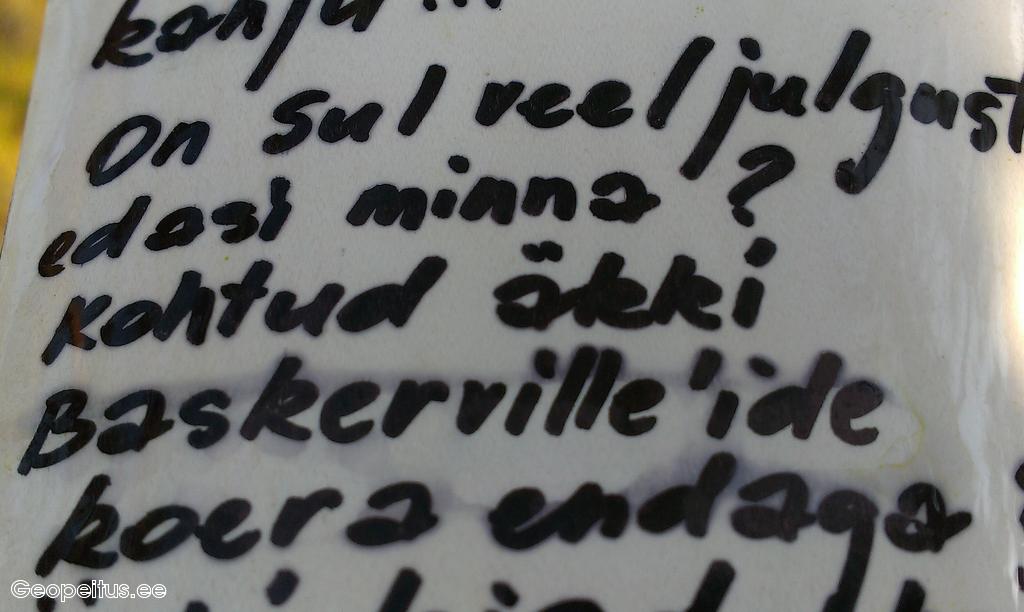 On sul veel julgust
edasi minna ?
Kohtud äkki
Baskerville'ide
koera endaga
Geopeitus.ee